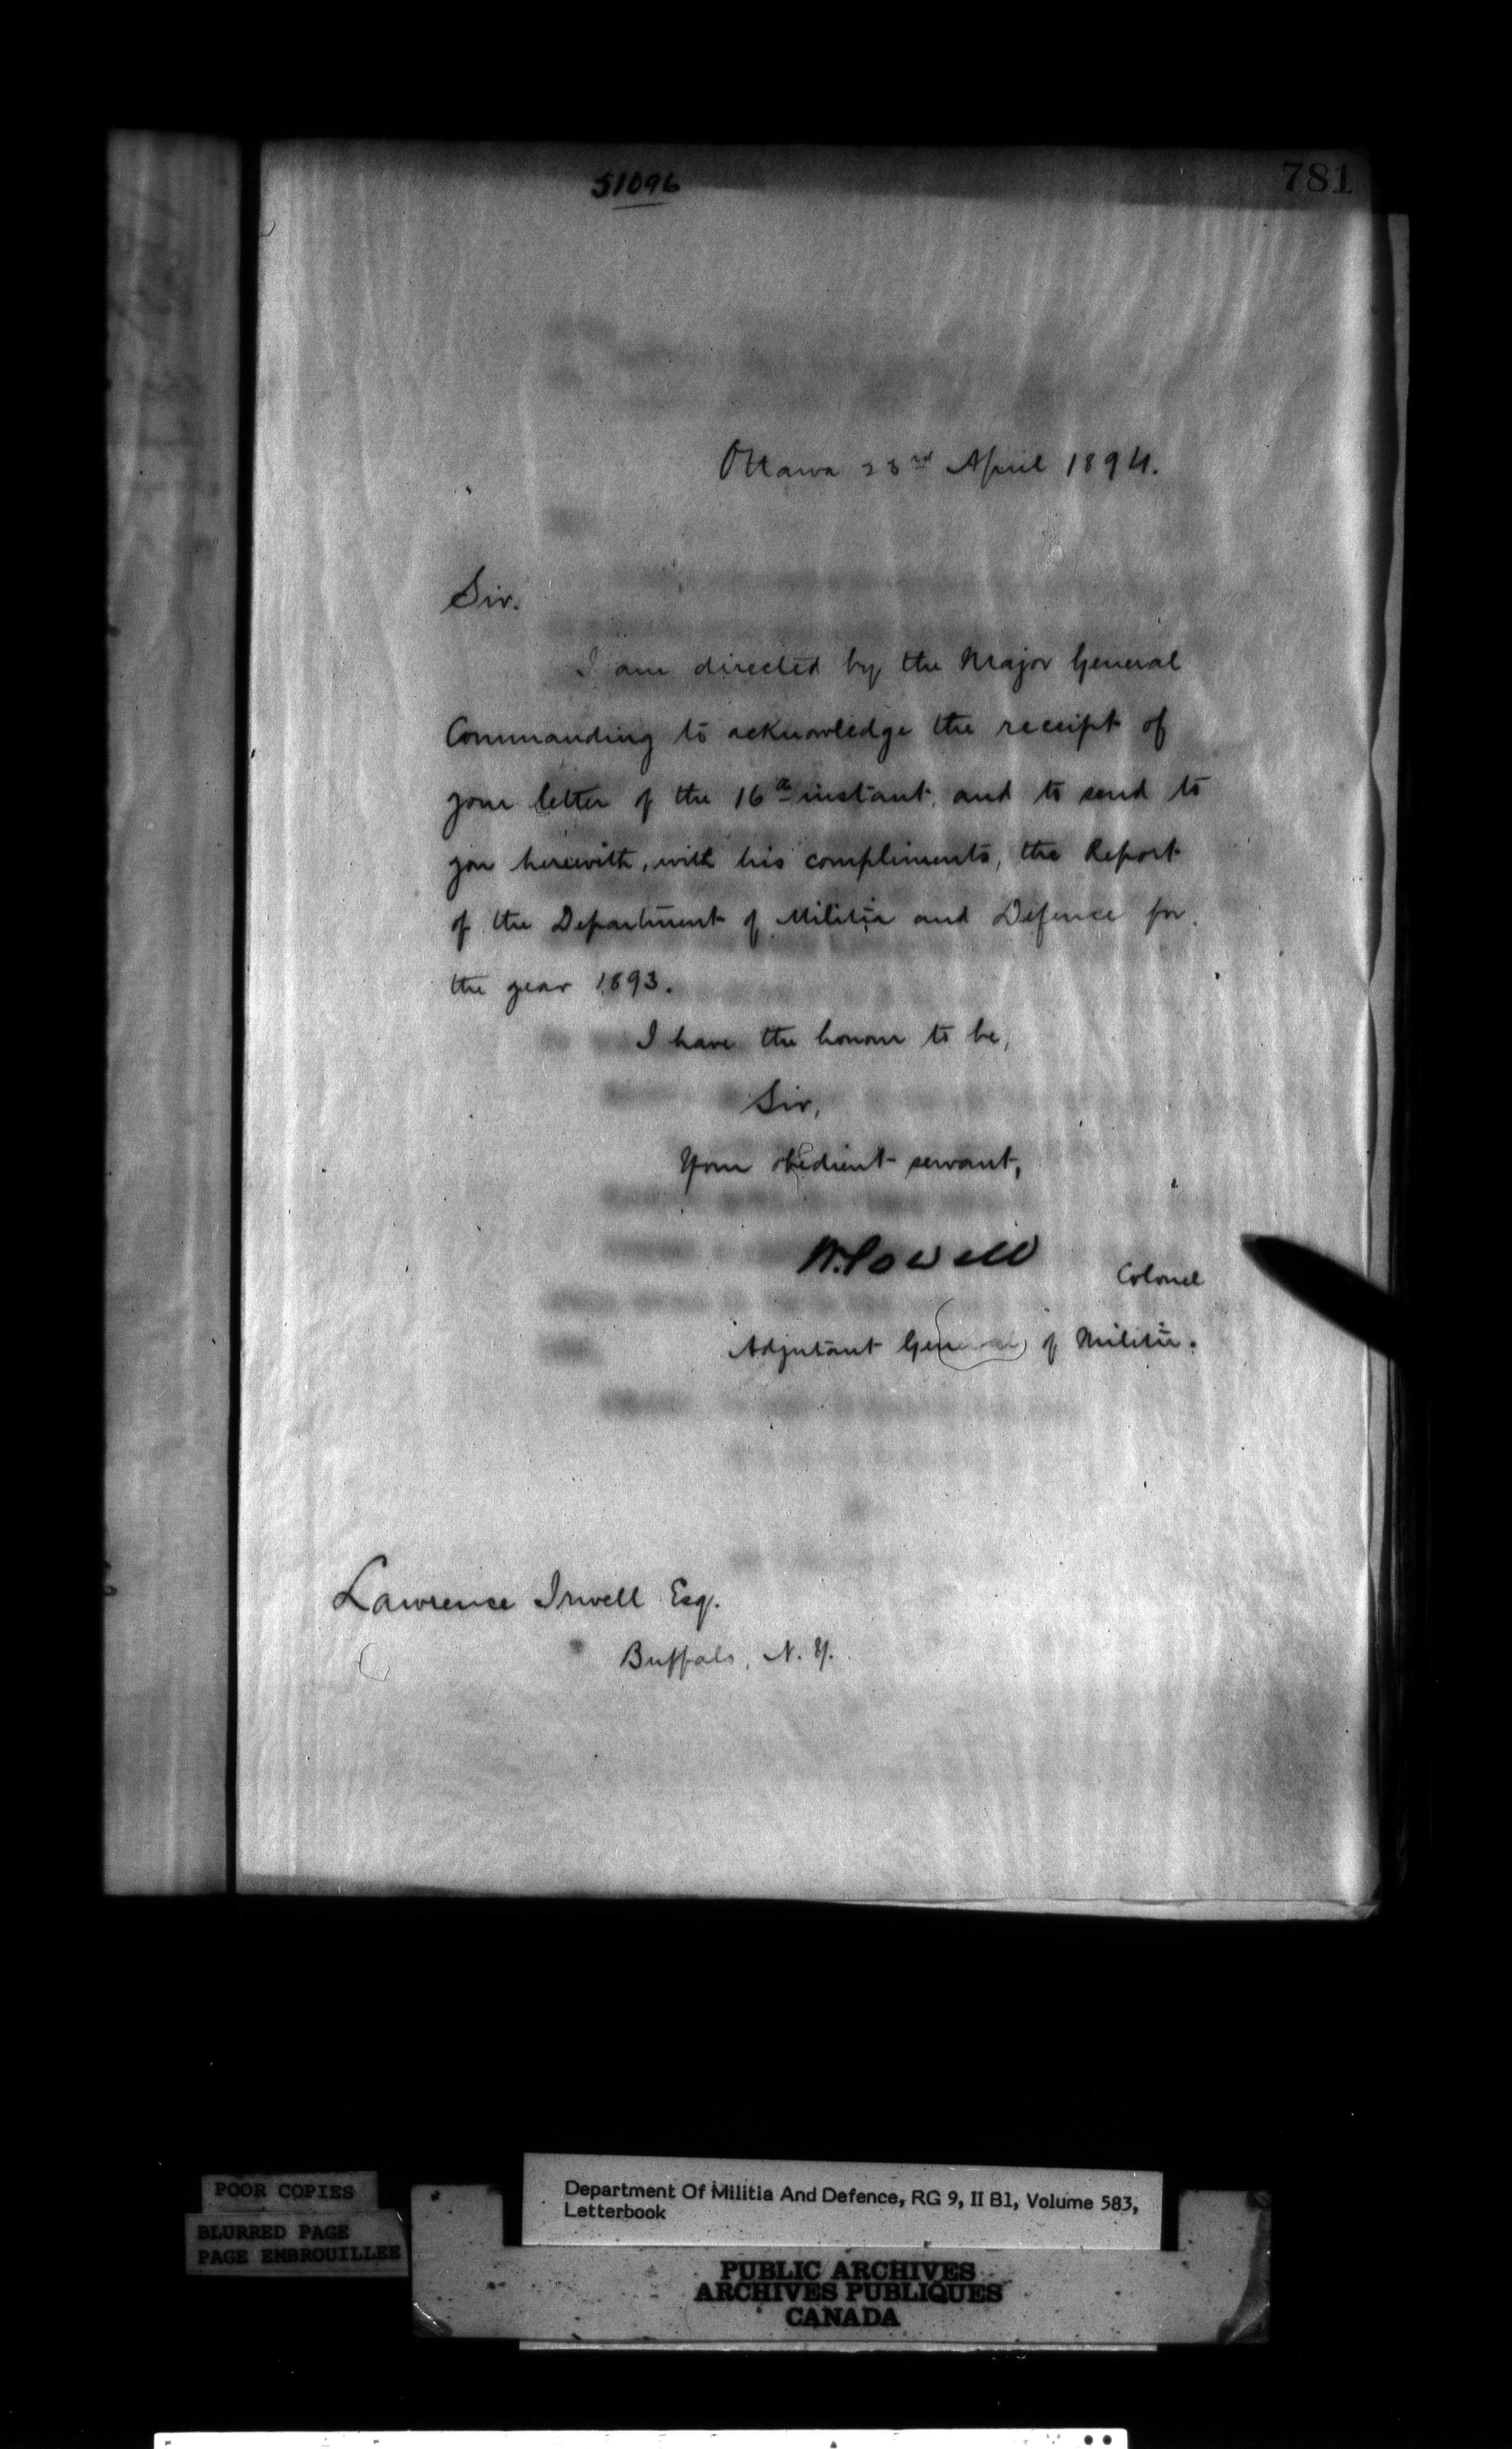 51096
781
Ottawa 23rd April 1894.
Sir.
I am directed by the Major General
Commanding to acknowledge the receipt of
your letter of the 16th instant, and to send to
you herewith, with his compliments, the Report
of the Department of Militia and Defence for
the year 1893.
I have the honour to be,
Sir,
Your obedient servant,
W. Powell
Colonel
Adjutant General of Militia.
Lawrence Irwell Esq.
Buffalo, N.Y.
POOR COPIES
BLURRED PAGE
PAGE EMBROUILLEE
Department Of Militia And Defence, RG 9, II B1, Volume 583,
Letterbook
PUBLIC ARCHIVES
ARCHIVES PUBLIQUES
CANADA